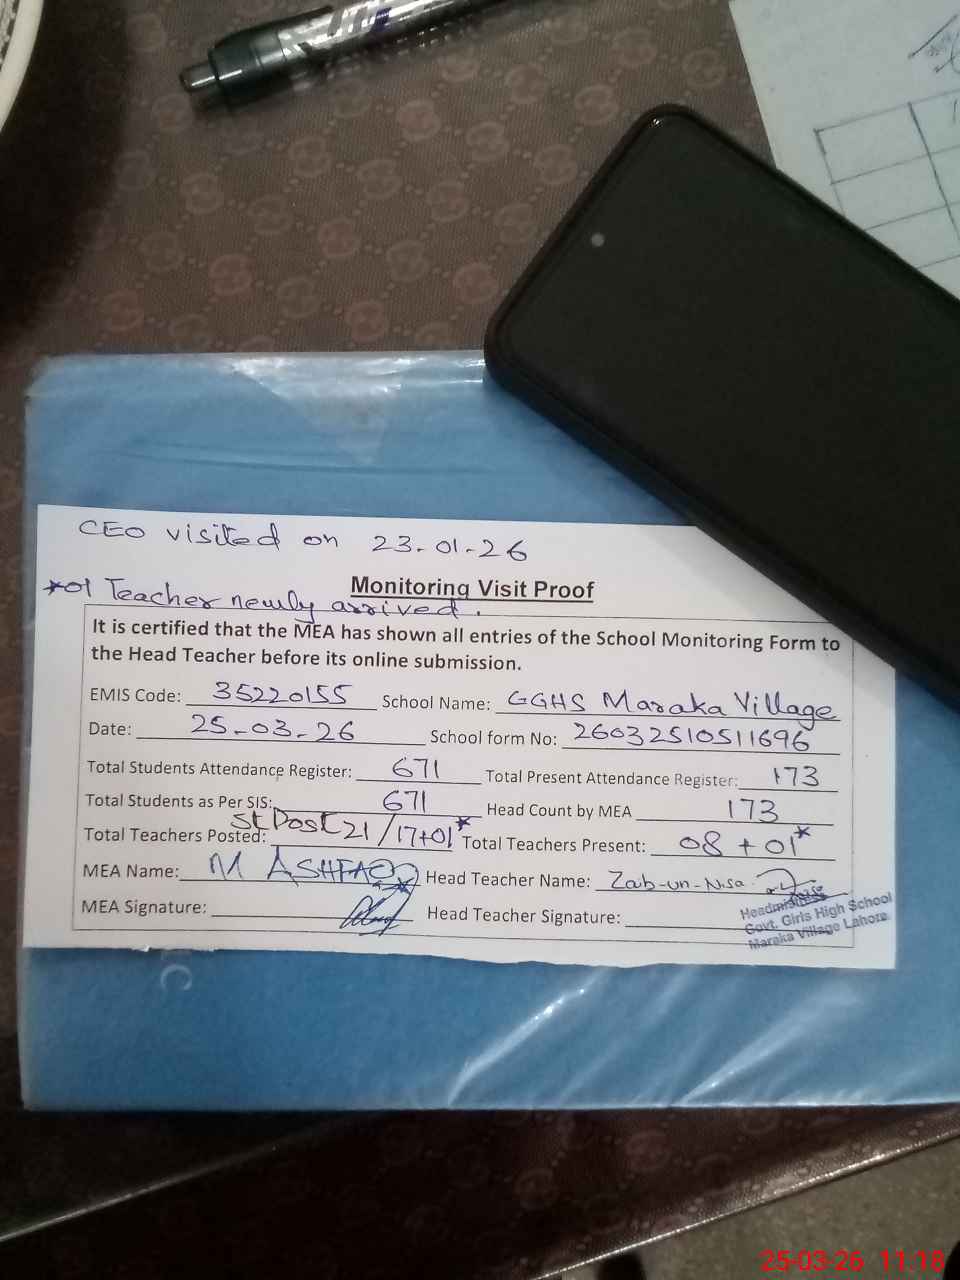 CEO visited on 23-01-26
Monitoring Visit Proof
*01 Teacher newly arrived.
It is certified that the MEA has shown all entries of the School Monitoring Form to
the Head Teacher before its online submission.
EMIS Code: 35220155 School Name: GGHS Maraka Village
Date: 25-03-26 School form No: 26032510511696
Total Students Attendance Register: 671 Total Present Attendance Register: 173
Total Students as Per SIS: 671 Head Count by MEA 173
Total Teachers Posted: St Post 21/17+01* Total Teachers Present: 08 + 01*
MEA Name: M ASHFAQ Head Teacher Name: Zaib-un-Nisa
MEA Signature: Head Teacher Signature:
Headmistress
Govt. Girls High School
Maraka Village Lahore.
25-03-26 11:18